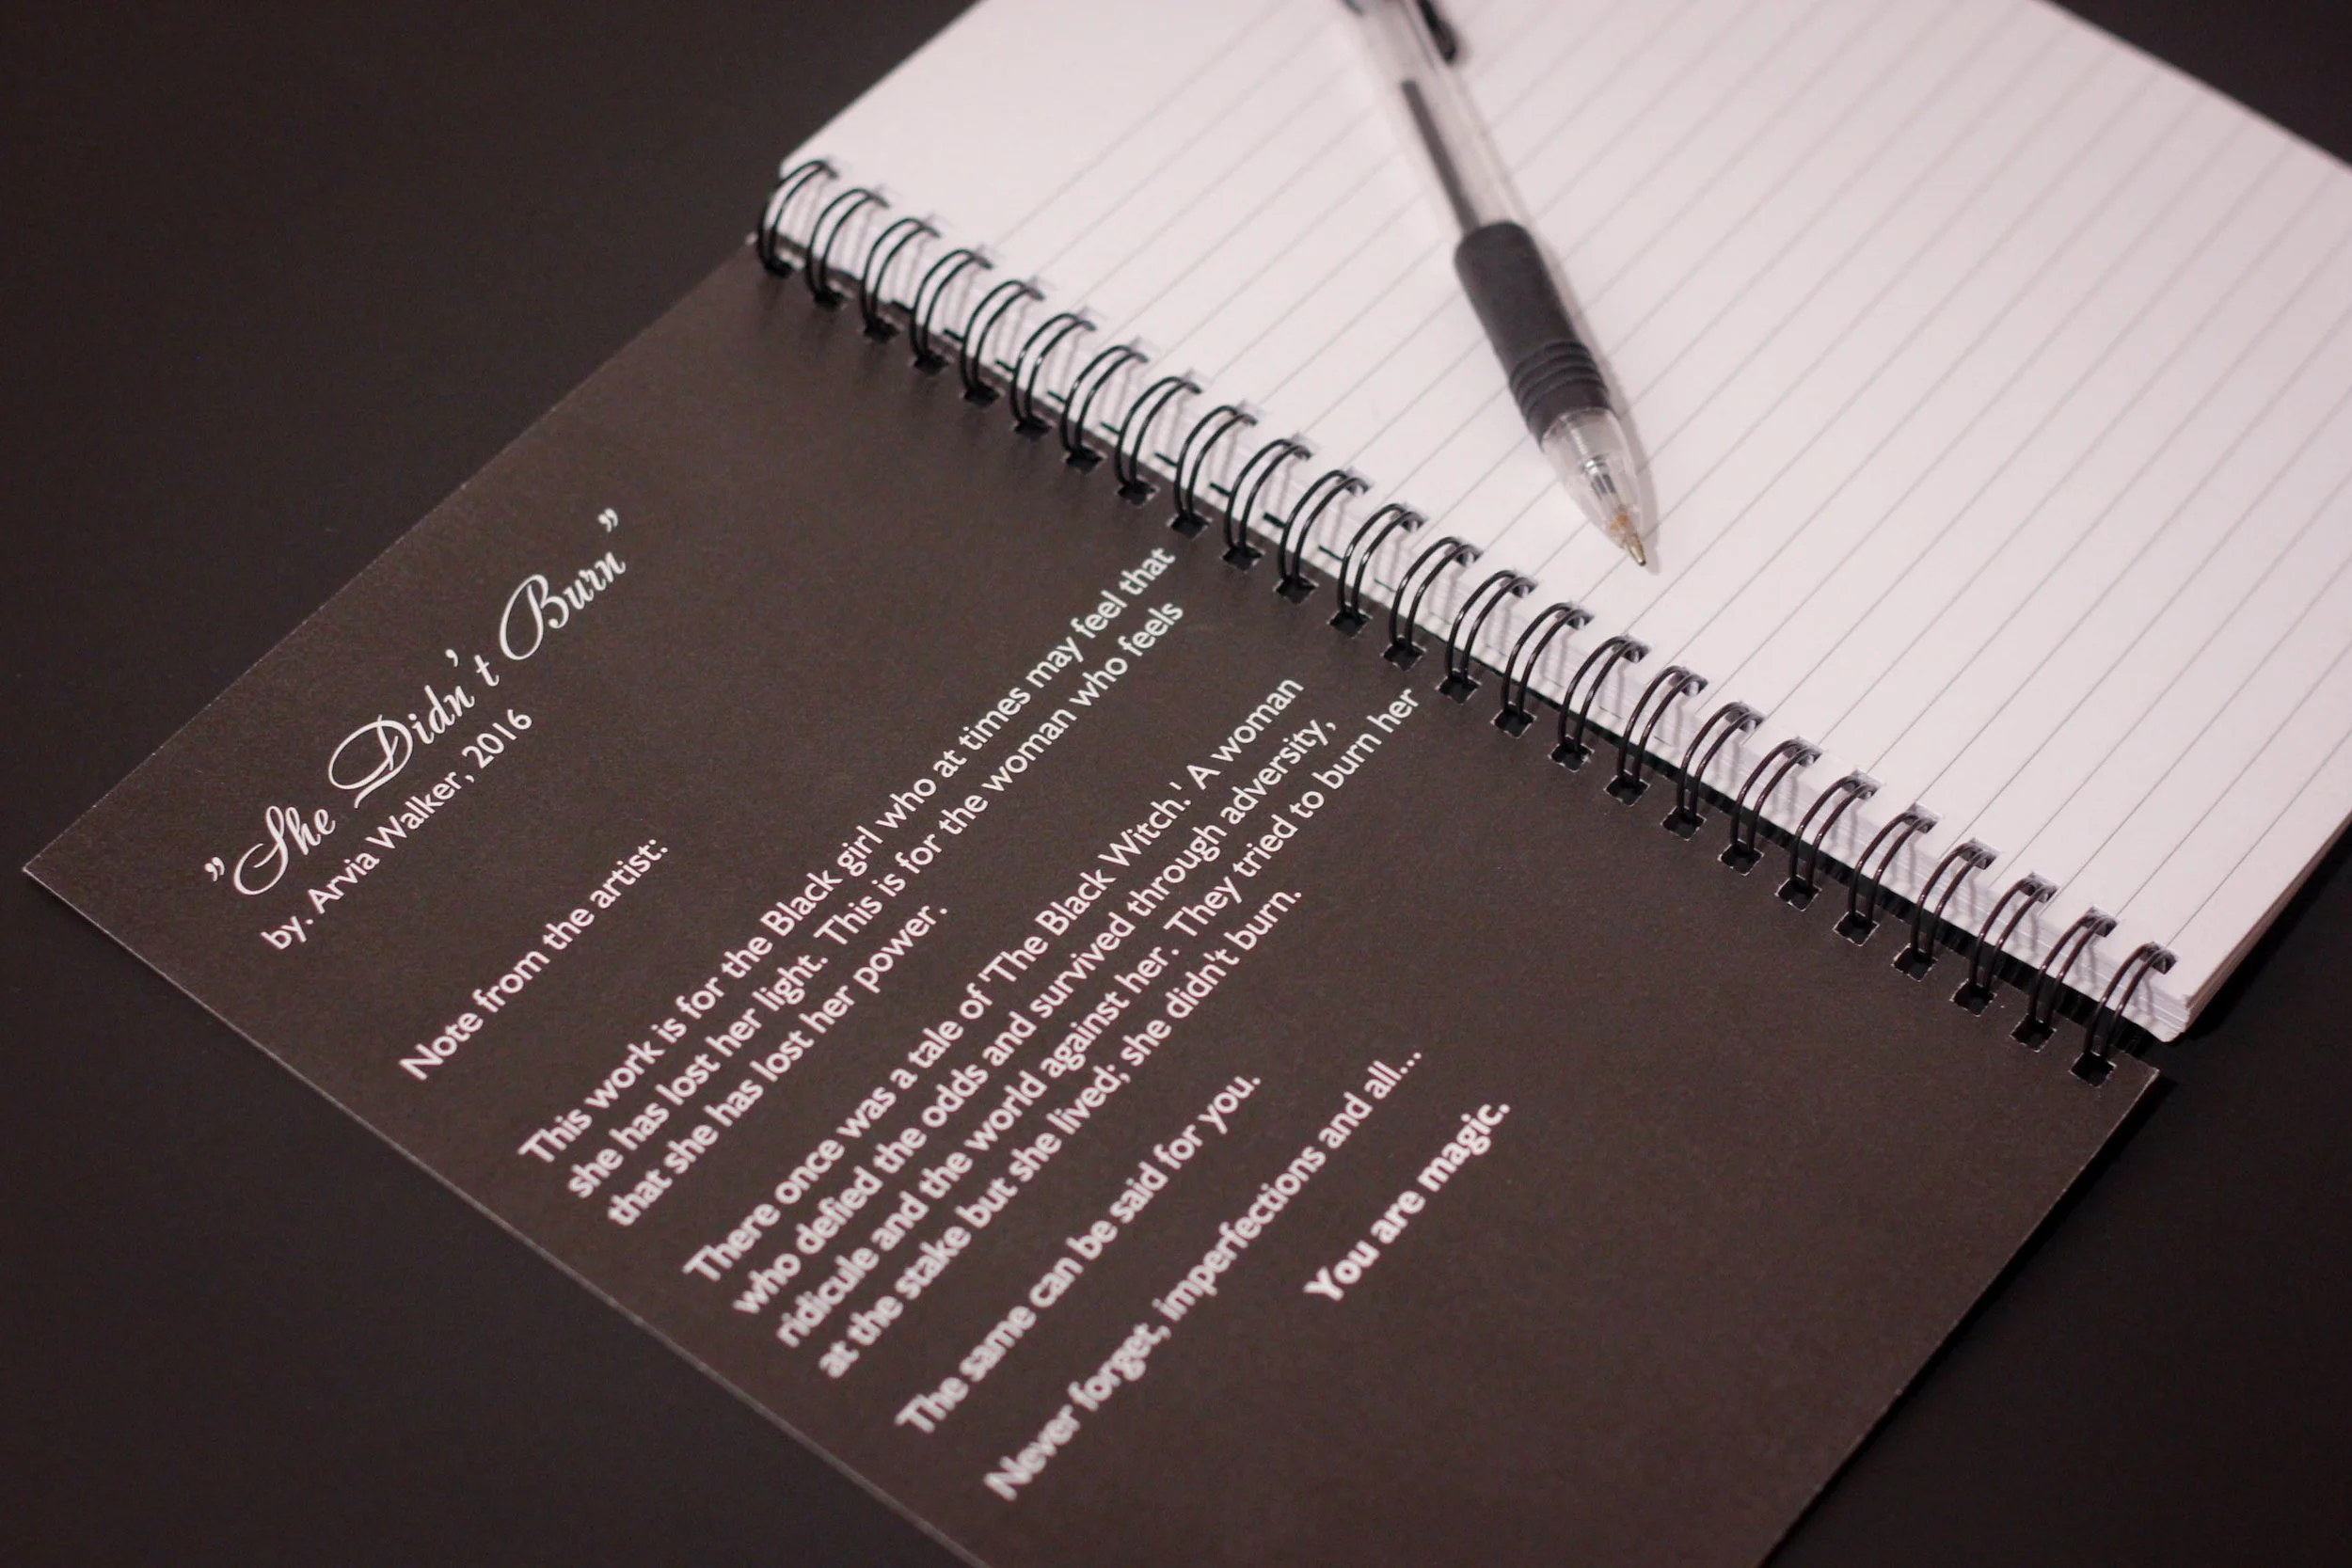 "She Didn't Burn"
by. Arvia Walker, 2016
Note from the artist:
This work is for the Black girl who at times may feel that
she has lost her light. This is for the woman who feels
that she has lost her power.
There once was a tale of 'The Black Witch.' A woman
who defied the odds and survived through adversity,
ridicule and the world against her. They tried to burn her
at the stake but she lived; she didn't burn.
The same can be said for you.
Never forget, imperfections and all...
You are magic.